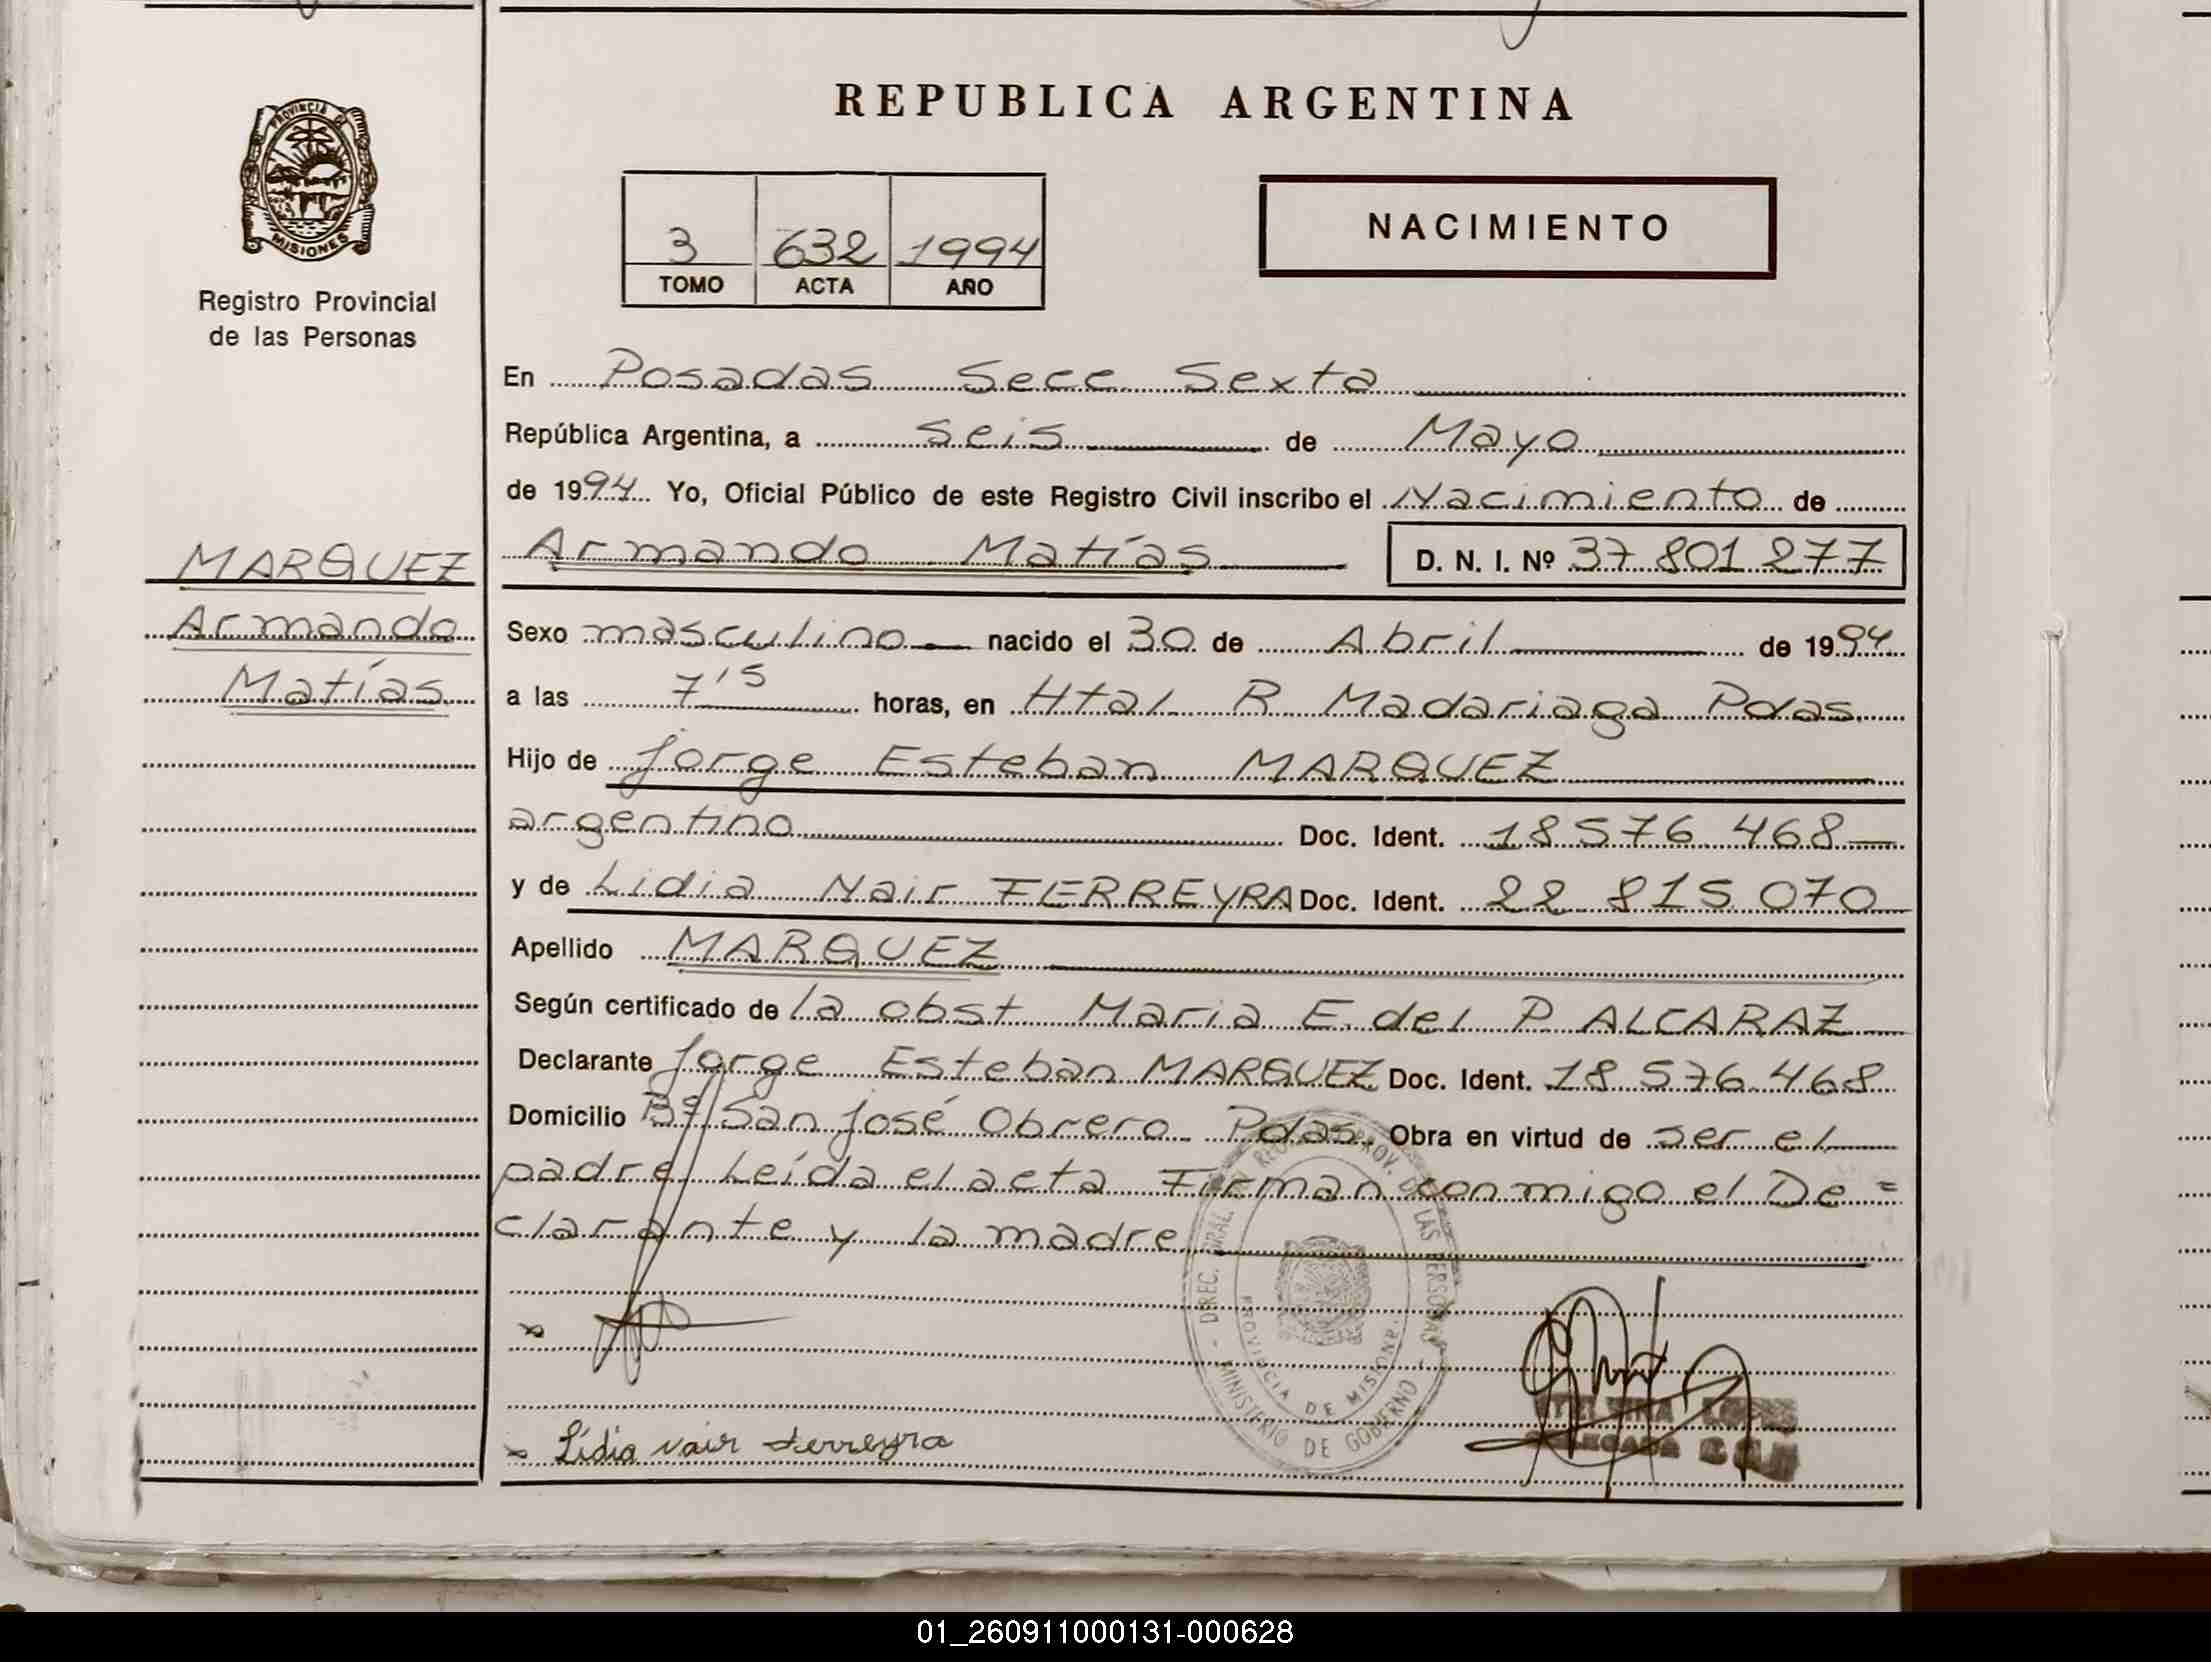 REPUBLICA ARGENTINA
PROVINCIA DE
MISIONES
Registro Provincial
de las Personas
3 632 1994
TOMO ACTA AÑO
NACIMIENTO
En Posadas Secc Sexta
República Argentina, a seis de Mayo
de 1994 Yo, Oficial Público de este Registro Civil inscribo el Nacimiento de
MARQUEZ
Armando
Matías
Armando Matías D. N. I. Nº 37 801 277
Sexo masculino nacido el 30 de Abril de 1994
a las 7'5 horas, en Htal R Madariaga Pdas.
Hijo de Jorge Esteban MARQUEZ
argentino Doc. Ident. 18 576 468
y de Lidia Nair FERREYRA Doc. Ident. 22 815 070
Apellido MARQUEZ
Según certificado de la obst Maria E. del P ALCARAZ
Declarante Jorge Esteban MARQUEZ Doc. Ident. 18 576 468
Domicilio Bº San José Obrero Pdas. Obra en virtud de ser el
padre Leída el acta Firman conmigo el De =
clarante y la madre
DIREC. GRAL DEL REG. PROV. DE LAS PERSONAS
PROVINCIA DE MISIONES
- MINISTERIO DE GOBIERNO -
x
x Lidia nair ferreyra
DELEGADA
01_260911000131-000628